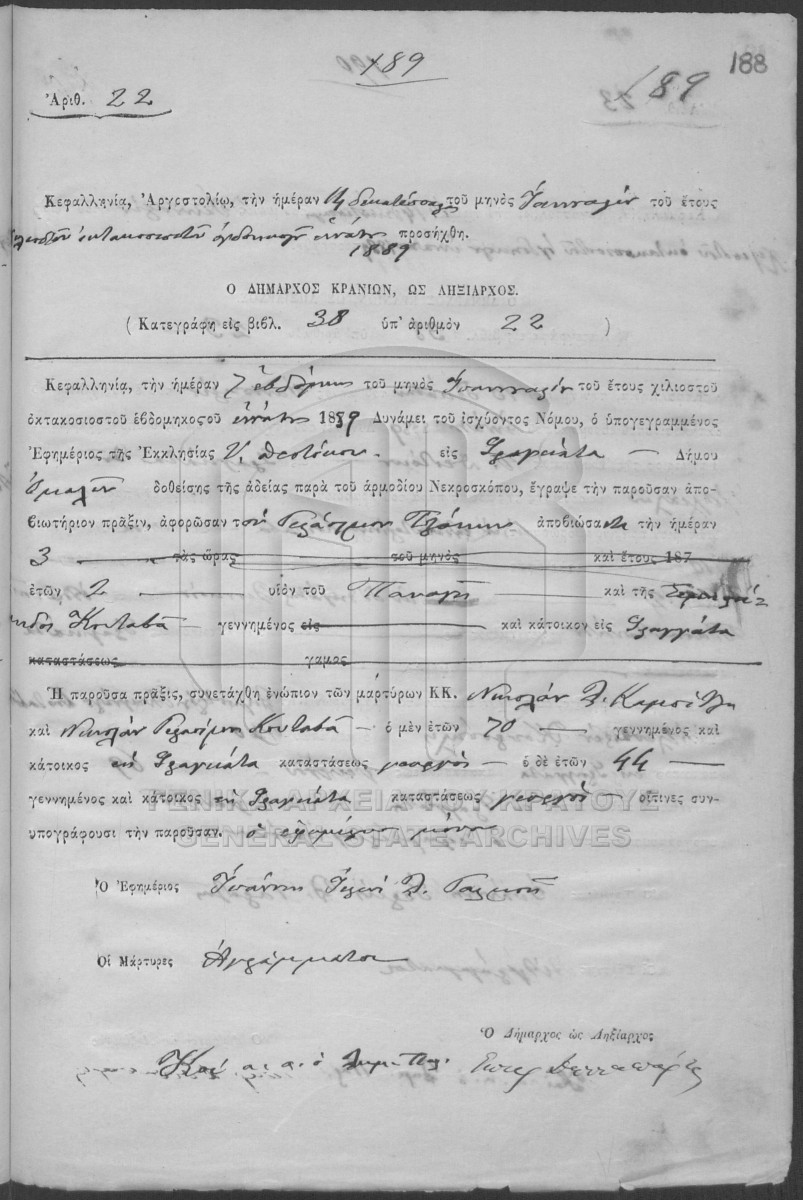 189
188
189
Ἀριθ. 22
Κεφαλληνία, Ἀργοστολίῳ, τὴν ἡμέραν 14 δεκατέσσαρες τοῦ μηνὸς Ἰαννουαρίου τοῦ ἔτους
χιλιοστοῦ ὀκτακοσιοστοῦ ὀγδοηκοστοῦ ἐννάτου προσήχθη.
1889
Ο ΔΗΜΑΡΧΟΣ ΚΡΑΝΙΩΝ, ΩΣ ΛΗΞΙΑΡΧΟΣ.
(Κατεγράφη εἰς βιβλ. 38 ὑπ' ἀριθμὸν 22)
Κεφαλληνία, τὴν ἡμέραν 7 ἑβδόμην τοῦ μηνὸς Ἰαννουαρίου τοῦ ἔτους χιλιοστοῦ
ὀκτακοσιοστοῦ ἑβδομηκοςοῦ ἐννάτου 1889 Δυνάμει τοῦ ἰσχύοντος Νόμου, ὁ ὑπογεγραμμένος
Ἐφημέριος τῆς Ἐκκλησίας Υ. Θεοτόκου. εἰς Φραγκάτα Δήμου
Ὁμαλῶν δοθείσης τῆς ἀδείας παρὰ τοῦ ἁρμοδίου Νεκροσκόπου, ἔγραψε τὴν παροῦσαν ἀπο-
βιωτήριον πρᾶξιν, ἀφορῶσαν τὸν Γεράσιμον ἀποβιώσαντα τὴν ἡμέραν
3 τὰς ὥρας τοῦ μηνὸς καὶ ἔτους 187
ἐτῶν 2 υἱὸν τοῦ Παναγῆ καὶ τῆς
Κουταβᾶ γεννημένος εἰς καὶ κάτοικον εἰς Φραγγάτα
καταστάσεως γαμος
Ἡ παροῦσα πρᾶξις, συνετάχθη ἐνώπιον τῶν μαρτύρων ΚΚ. Νικολάου
καὶ Νικολάου Γερασίμου Κουταβᾶ ὁ μὲν ἐτῶν 70 γεννημένος καὶ
κάτοικος εἰς Φραγκάτα καταστάσεως γεωργὸς ὁ δὲ ἐτῶν 44
γεννημένος καὶ κάτοικος εἰς Φραγκάτα καταστάσεως γεωργὸς οἵτινες συν-
υπογράφουσι τὴν παροῦσαν. ὁ ἐφημέριος μόνος
ΓΕΝΙΚΑ ΑΡΧΕΙΑ ΤΟΥ ΚΡΑΤΟΥΣ
GENERAL STATE ARCHIVES
Ὁ Ἐφημέριος Ἰωάννης Ἱερεὺς
Οἱ Μάρτυρες Ἀγράμματοι
Ὁ Δήμαρχος ὡς Ληξίαρχος